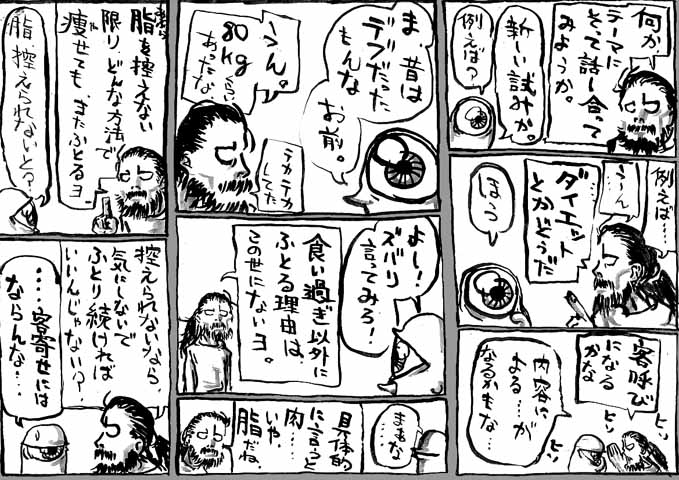 何か
テーマに
そって話し合って
みようか。
新しい試みか。
例えば?
例えば…
う〜ん…
ダイエット
とかどうだ
ほう
客呼び
になる
かな
ヒソ
ヒソ
内容に
よる…が
なるかもな…
ま、昔は
デブだった
もんな
お前。
うん。
80
kgくらい
あったな
テカテカ
してた
よし!
ズバリ
言ってみろ!
食い過ぎ以外に
ふとる理由は、
この世にないヨ。
まぁな
……
具体的
に言うと
肉…
いや、
脂だね。
脂を控えない
限り、どんな方法で
痩せても、またふとるヨ。
脂、控えられないと?
控えられないなら
気にしないで
ふとり続ければ
いいんじゃない?
……客寄せには
ならんな…